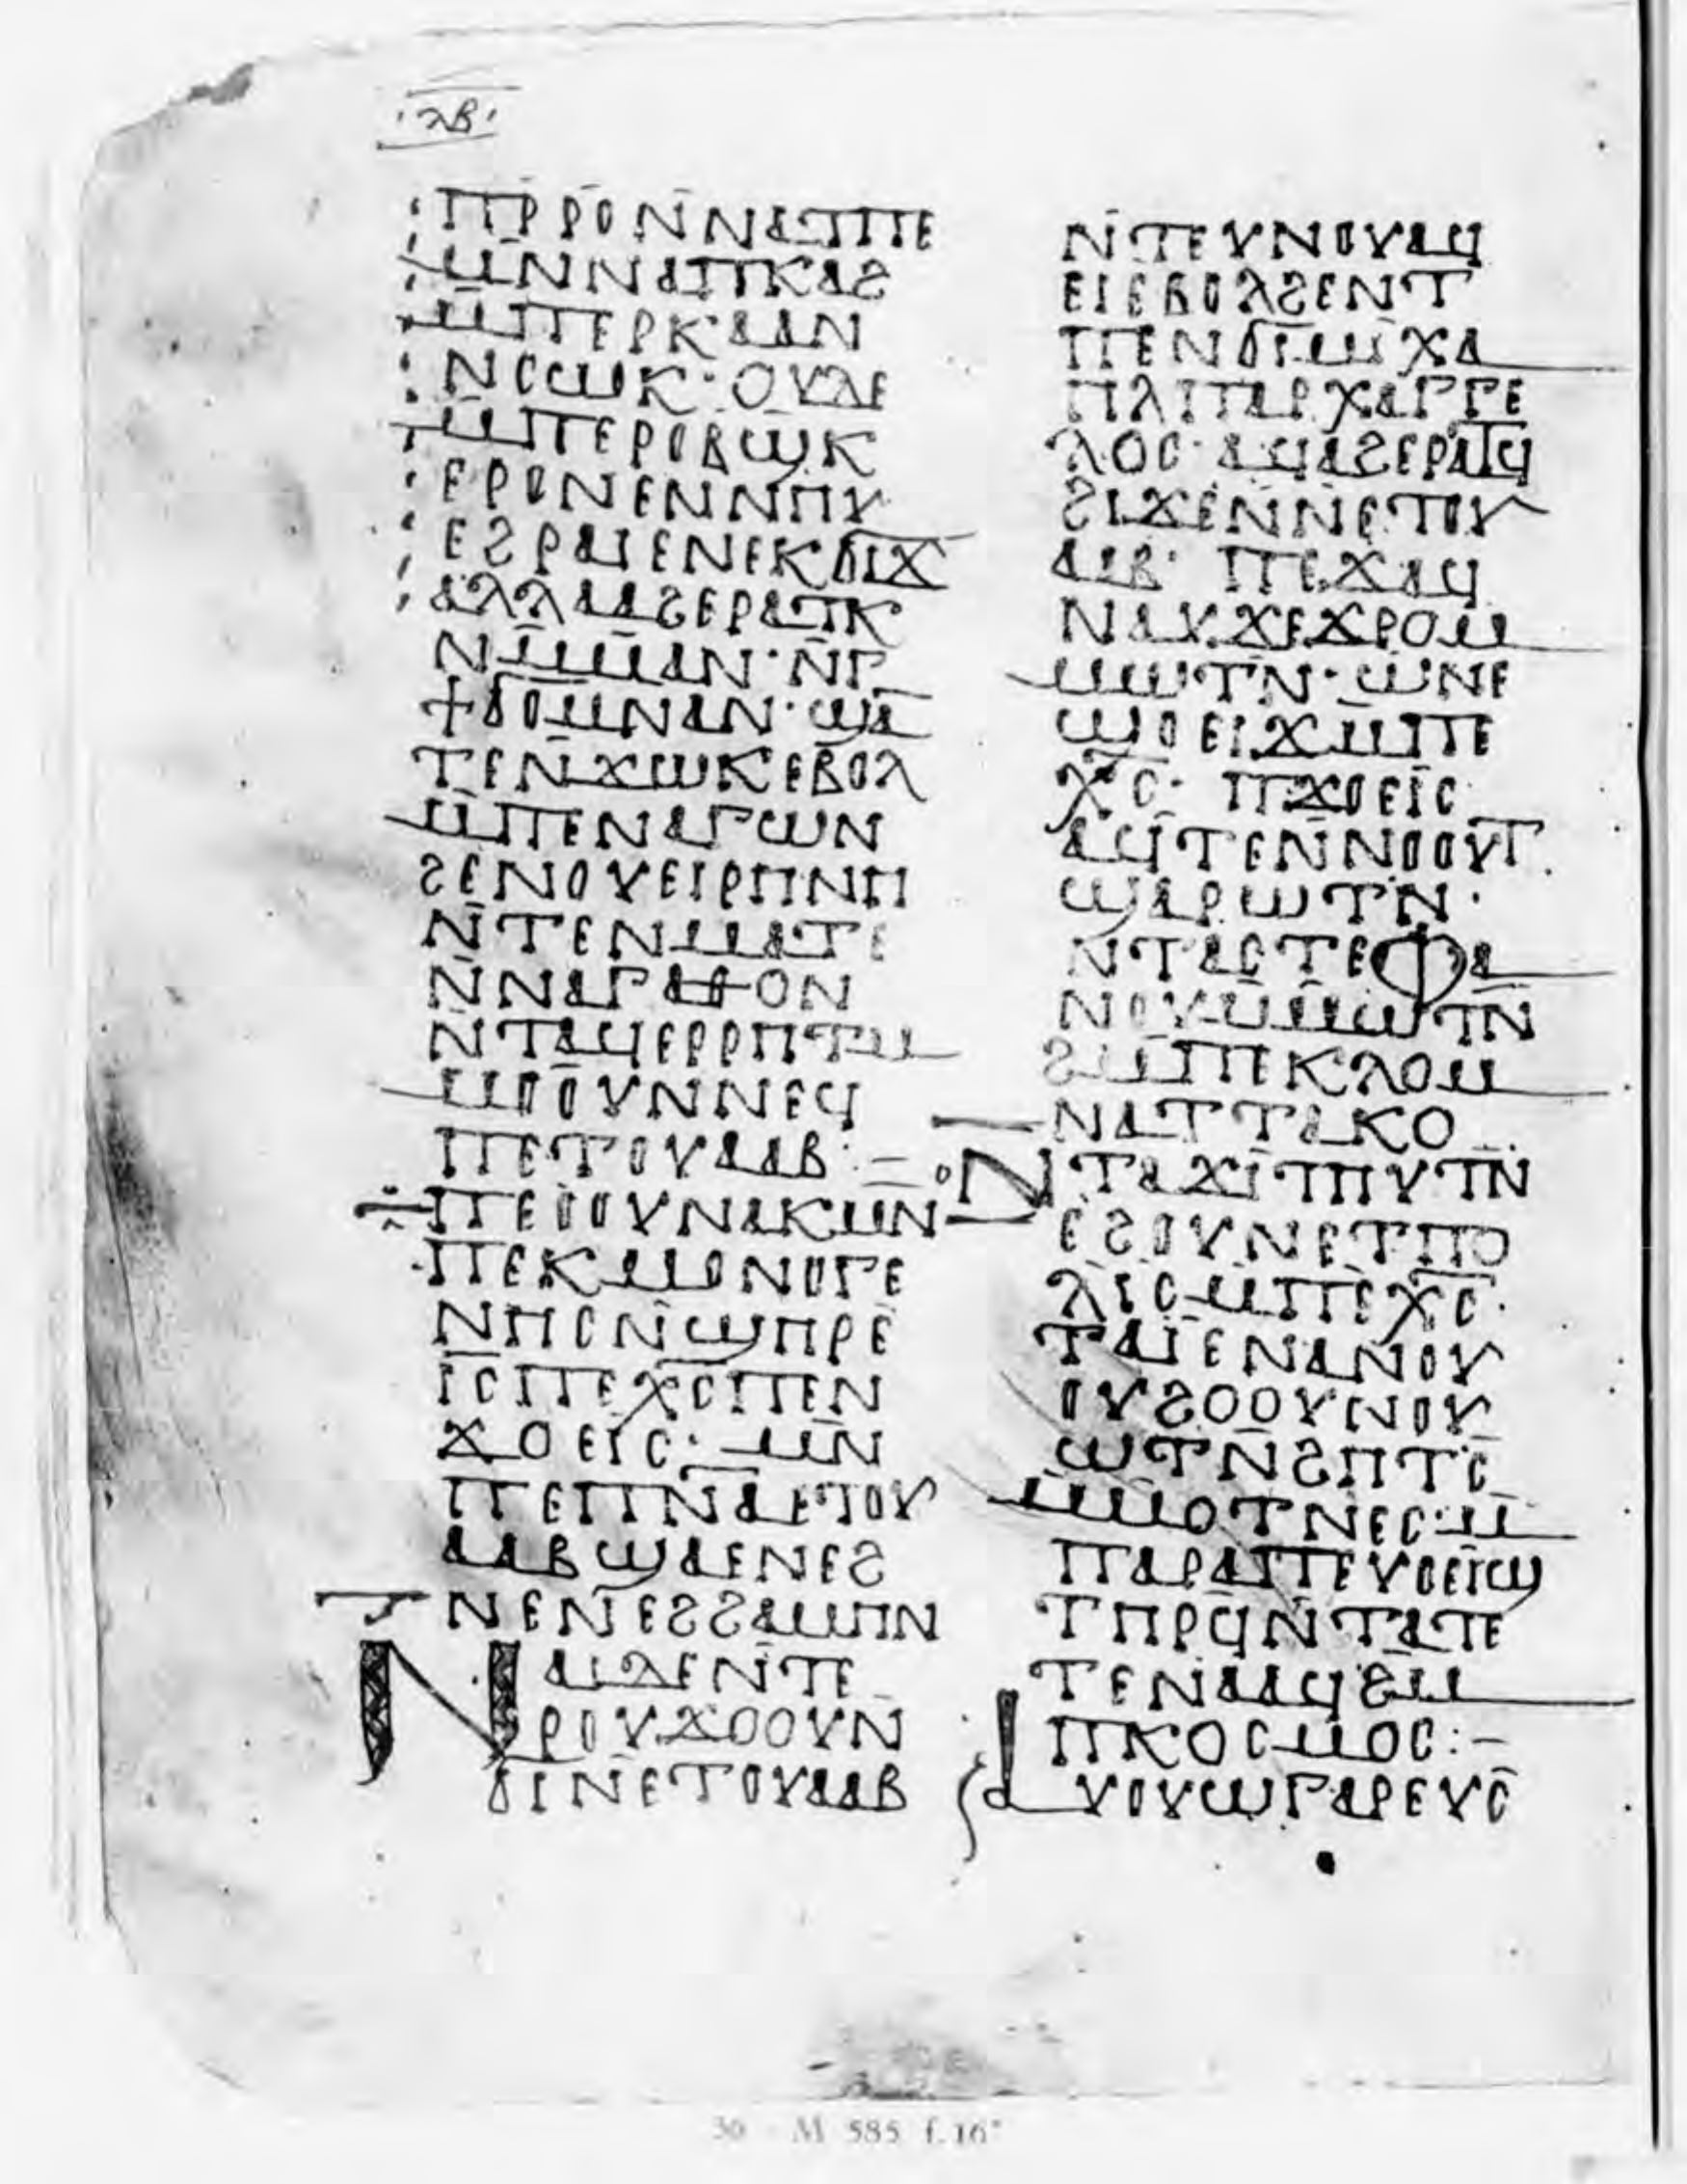 ⲗⲃ
ⲡⲣ̄ⲣⲟ ⲛ̄ⲛⲁⲧⲡⲉ
ⲙⲛ̄ⲛⲁⲡⲕⲁϩ
ⲙ̄ⲡⲉⲣⲕⲁⲁⲛ
ⲛ̄ⲥⲱⲕ· ⲟⲩⲇⲉ
ⲙ̄ⲡⲉⲣⲟⲃϣⲕ
ⲉⲣⲟⲛ ⲉⲛⲛⲏⲩ
ⲉϩⲣⲁⲓ ⲉⲛⲉⲕϭⲓϫ
ⲁⲗⲗⲁ ⲁϩⲉⲣⲁⲧⲕ
ⲛⲙ̄ⲙⲁⲛ· ⲛ̄ⲅ
ϯϭⲟⲙ ⲛⲁⲛ· ϣⲁ
ⲧⲉⲛ̄ϫⲱⲕ ⲉⲃⲟⲗ
ⲙ̄ⲡⲉⲛⲁⲅⲱⲛ
ϩⲉⲛⲟⲩⲉⲓⲣⲏⲛⲏ
ⲛ̄ⲧⲉⲛⲙⲁⲧⲉ
ⲛ̄ⲛⲁⲅⲁⲑⲟⲛ
ⲛ̄ⲧⲁϥⲉⲣⲣⲏⲧ ⲙ
ⲙⲟⲟⲩ ⲛⲛⲉϥ
ⲡⲉⲧⲟⲩⲁⲁⲃ :–
ⲡⲉⲟⲟⲩ ⲛⲁⲕ ⲙⲛ
ⲡⲉⲕⲙⲟⲛⲟⲅⲉ
ⲛⲏⲥ ⲛ̄ϣⲏⲣⲉ
ⲓ̄ⲥ̄ ⲡⲉⲭ̄ⲥ̄ ⲡⲉⲛ
ϫⲟⲉⲓⲥ· ⲙⲛ
ⲡⲉⲡⲛ̄ⲁ̄ ⲉⲧⲟⲩ
ⲁⲁⲃ ϣⲁⲉⲛⲉϩ
ⲛⲉⲛⲉϩ ϩⲁⲙⲏⲛ
ⲛⲁⲓ ⲇⲉ ⲛ̄ⲧⲉ
ⲣⲟⲩϫⲟⲟⲩ ⲛ
ϭⲓⲛⲉⲧⲟⲩⲁⲁⲃ
ⲛ̄ⲧⲉⲩⲛⲟⲩ ⲁϥ
ⲉⲓ ⲉⲃⲟⲗϩⲉⲛⲧ
ⲡⲉ ⲛϭⲓⲙⲓⲭⲁ
ⲏⲗ ⲡⲁⲣⲭⲁⲅⲅⲉ
ⲗⲟⲥ· ⲁϥⲁϩⲉⲣⲁⲧϥ
ϩⲓϫⲉⲛ̄ⲛⲉⲧⲟⲩ
ⲁⲁⲃ· ⲡⲉϫⲁϥ
ⲛⲁⲩ ϫⲉϫⲣⲟ ⲙ
ⲙⲱⲧⲛ· ⲱ ⲛⲉ
ϣⲟⲉⲓϫ ⲙ̄ⲡⲉ
ⲭ̄ⲥ̄· ⲡϫⲟⲉⲓⲥ
ⲁϥⲧⲉⲛ̄ⲛⲟⲟⲩⲧ
ϣⲁⲣⲱⲧⲛ·
ⲛⲧⲁⲥⲧⲉⲫⲁ
ⲛⲟⲩ ⲙ̄ⲙⲱⲧⲛ̄
ϩⲙ̄ⲡⲉⲕⲗⲟⲙ
ⲛⲁⲧⲧⲁⲕⲟ
ⲛ̄ⲧⲁϫⲓⲧⲏⲩⲧⲛ̄
ⲉϩⲟⲩⲛ ⲉⲧⲡⲟ
ⲗⲓⲥ ⲙ̄ⲡⲉⲭ̄ⲥ̄·
ⲧⲁⲓ ⲉⲛⲁⲛⲟⲩ
ⲟⲩϩⲟⲟⲩ ⲛⲟⲩ
ⲱⲧ ⲛ̄ϩⲏⲧⲥ̄
ⲙⲙⲟⲧⲛⲉⲥ ⲙ
ⲡⲁⲣⲁⲡⲉⲩⲟⲉⲓϣ
ⲧⲏⲣϥ ⲛ̄ⲧⲁⲧⲉ
ⲧⲉⲛⲁⲁϥ ϩⲙ
ⲡⲕⲟⲥⲙⲟⲥ :–
ⲁⲩⲟⲩⲱ ⲅⲁⲣ ⲉⲩⲥ̄
30 M 585 f. 16ᵛ